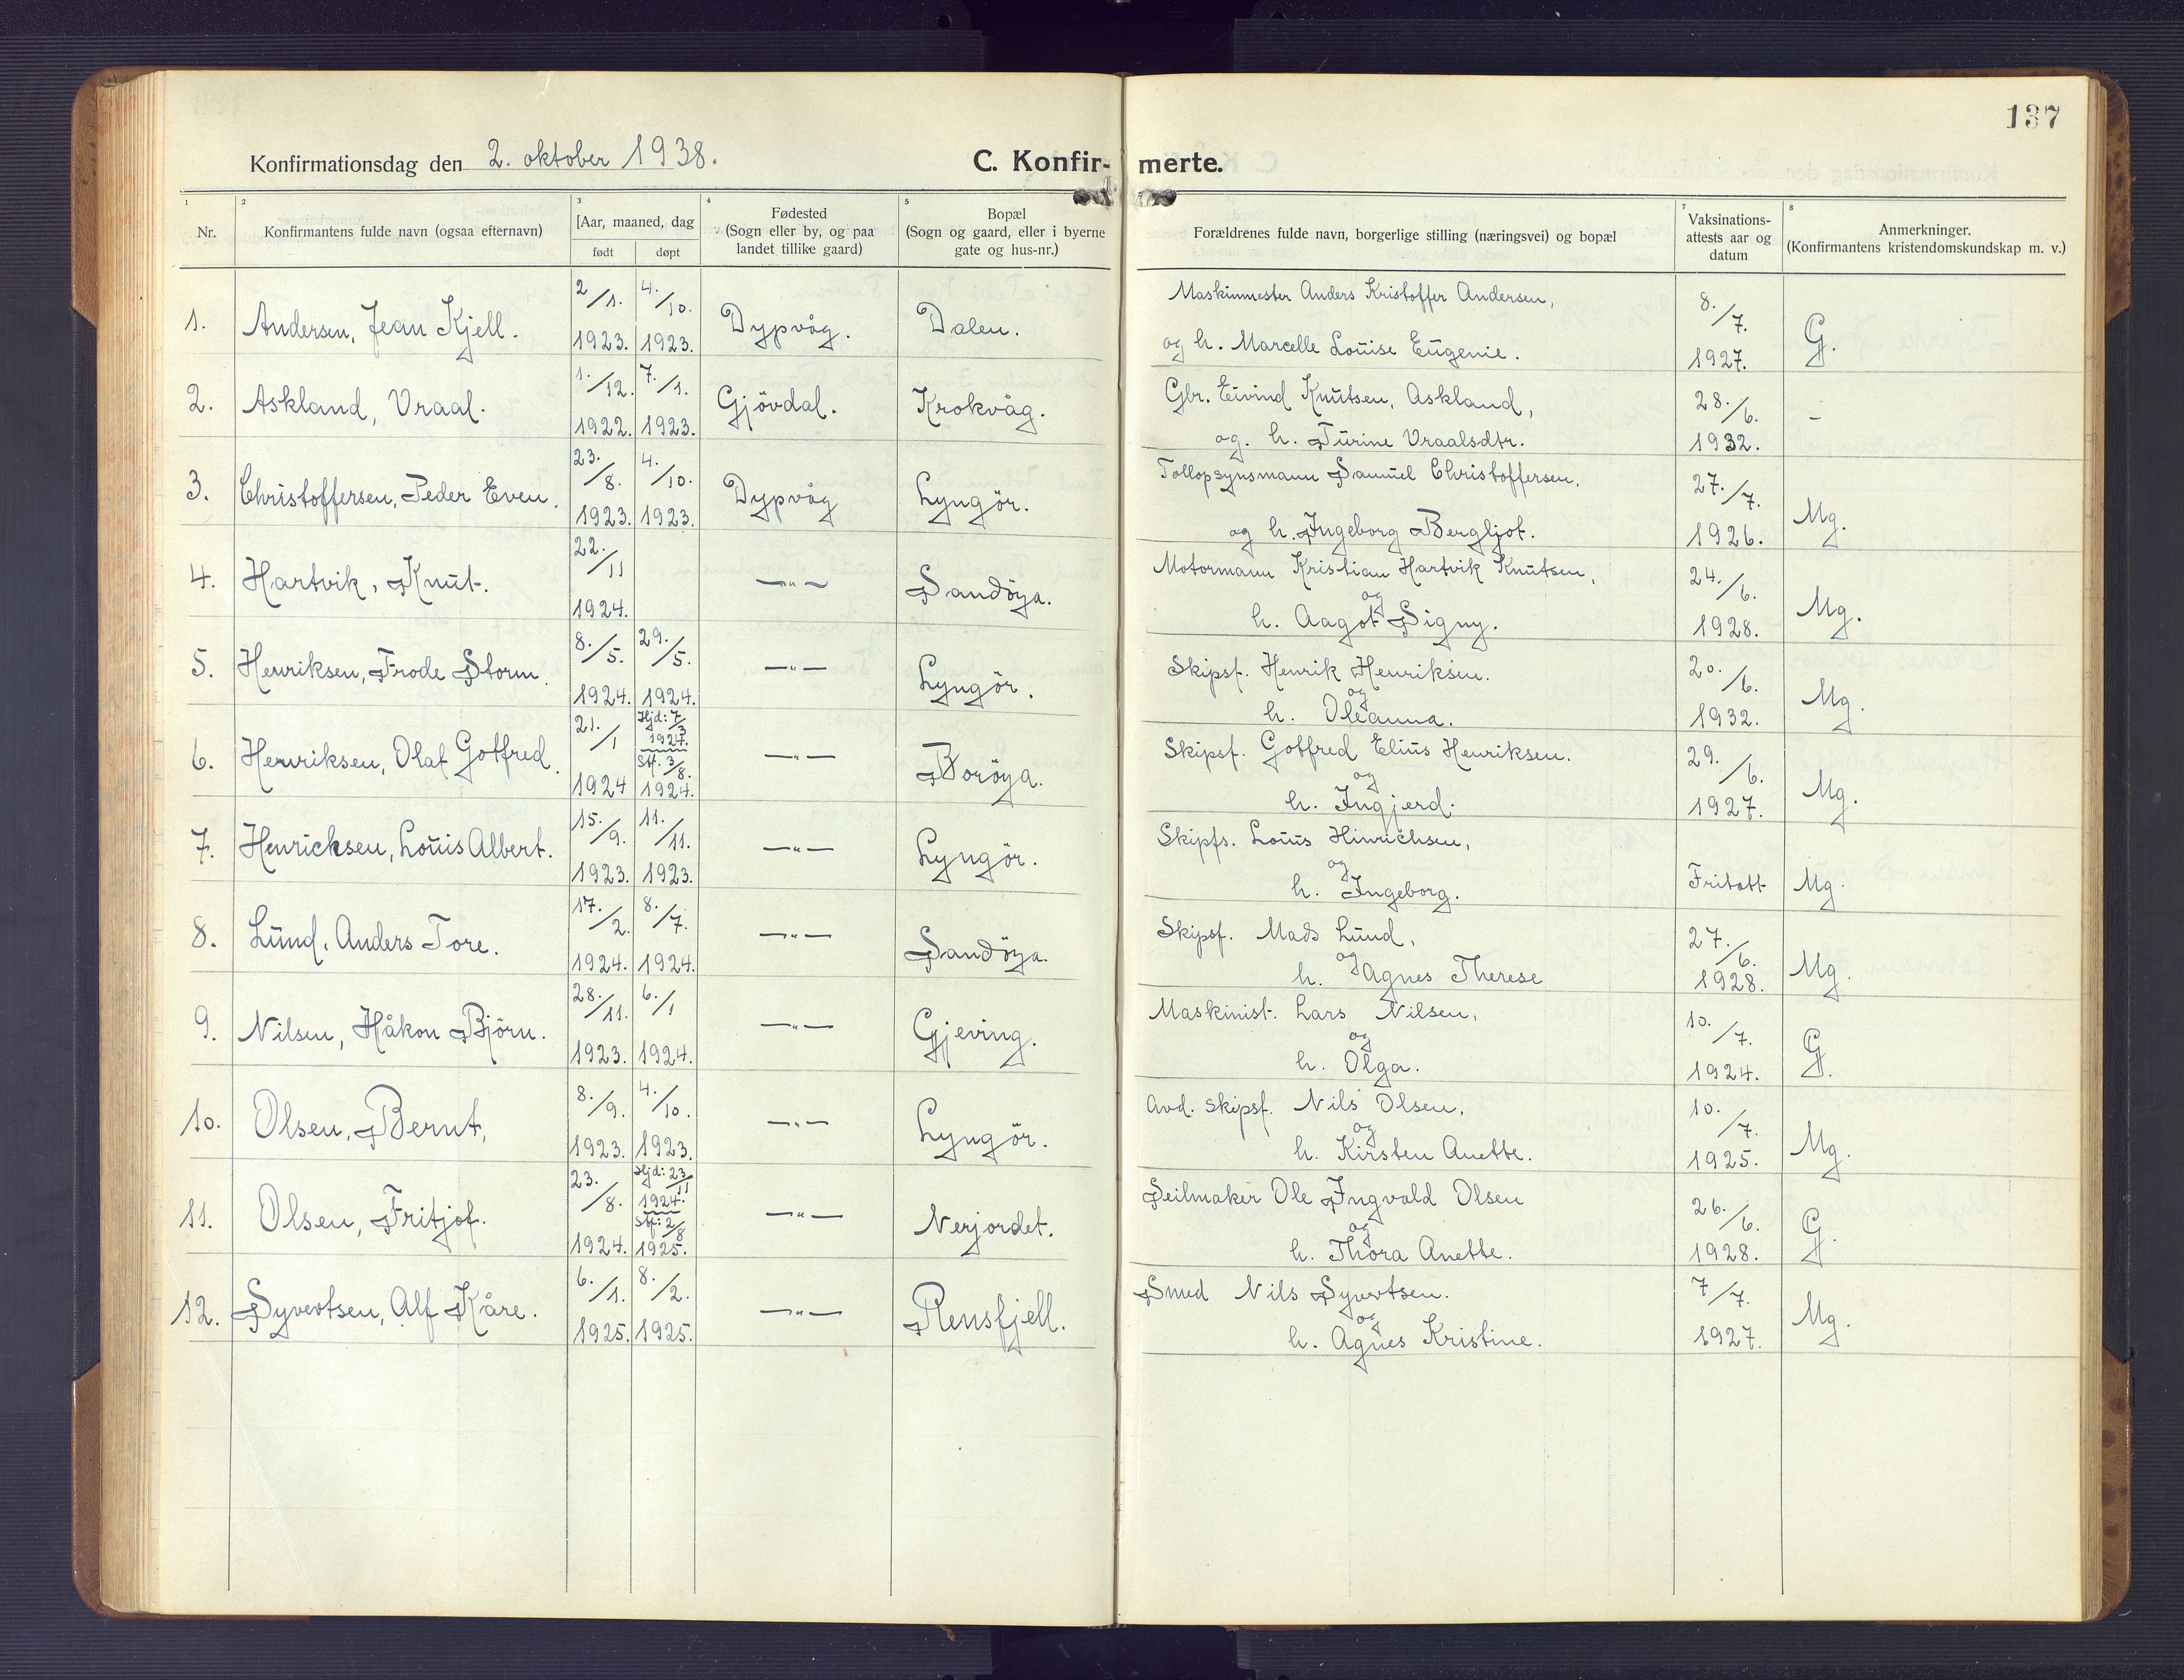 137
Konfirmationsdag den 2. oktober 1938.
C. Konfir- merte.
1 2 3 4 5 7 8
Nr.
Konfirmantens fulde navn (ogsaa efternavn)
[Aar, maaned, dag
født døpt
Fødested
(Sogn eller by, og paa
landet tillike gaard)
Bopæl
(Sogn og gaard, eller i byerne
gate og hus-nr.)
Forældrenes fulde navn, borgerlige stilling (næringsvei) og bopæl
Vaksinations-
attests aar og
datum
Anmerkninger.
(Konfirmantens kristendomskundskap m. v.)
1. Andersen, Jean Kjell. 2/1. 1923. 4./10. 1923. Dypvåg. Dalen. Maskinmester Anders Kristoffer Andersen,
og h. Marcelle Louise Eugenie. 8./7. 1927. G.
2. Askland, Vraal. 1./12. 1922. 7./1. 1923. Gjövdal. Krokvåg. Gbr. Eivind Knutsen, Askland,
og. h. Turine Vraalsdtr. 28./6. 1932. -
3. Christoffersen, Peder Even. 23./8. 1923. 4./10. 1923. Dypvåg Lyngör. Tollopsynsmann Samuel Christoffersen,
og h. Ingeborg Bergljot. 27./7. 1926. Mg.
4. Hartvik, Knut. 22./11 1924. —"— Sandöya. Motormann Kristian Hartvik Knutsen,
og
h. Aagot Signy. 24./6. 1928. Mg.
5. Henriksen, Frode Storm. 8./5. 1924. 29./5. 1924. —"— Lyngör. Skipsf. Henrik Henriksen.
og
h. Oleanna. 20./6. 1932. Mg.
6. Henriksen, Olaf Gotfred. 21./1 1924 Hjd: 7/3 1924. Stf. 3/8. 1924. —"— Boröya. Skipsf. Gotfred Elius Henriksen.
og
h. Ingjerd. 29./6. 1927. Mg.
7. Henricksen, Louis Albert. 15./9. 1923. 11./11. 1923. —"— Lyngör. Skipfs. Louis Hinrichsen,
og
h. Ingeborg. Fritatt Mg.
8. Lund, Anders Tore. 17./2. 1924. 8./7. 1924. —"— Sandöya. Skipsf. Mads Lund,
og
h. Agnes Therese 27./6. 1928. Mg.
9. Nilsen, Håkon Björn. 28./11. 1923. 6./1 1924. —"— Gjeving. Maskinist. Lars Nilsen,
og
h. Olga. 10./7. 1924. G.
10. Olsen, Bernt, 8./9. 1923. 4./10. 1923. —"— Lyngör. Avd. Skipsf. Nils Olsen,
og
h. Kirsten Anette. 10./7. 1925. Mg.
11. Olsen, Fritjof. 23./8. 1924. Hjd: 23/11 1924. Stf: 2/8 1925. —"— Nerjordet. Seilmaker Ole Ingvald Olsen
og
h. Thora Anette. 26./6. 1928. G.
12. Syvertsen, Alf Kåre. 6./1. 1925. 8./2. 1925. —"— Rensfjell. Smed Nils Syvertsen.
og
h. Agnes Kristine. 7/7. 1927. Mg.